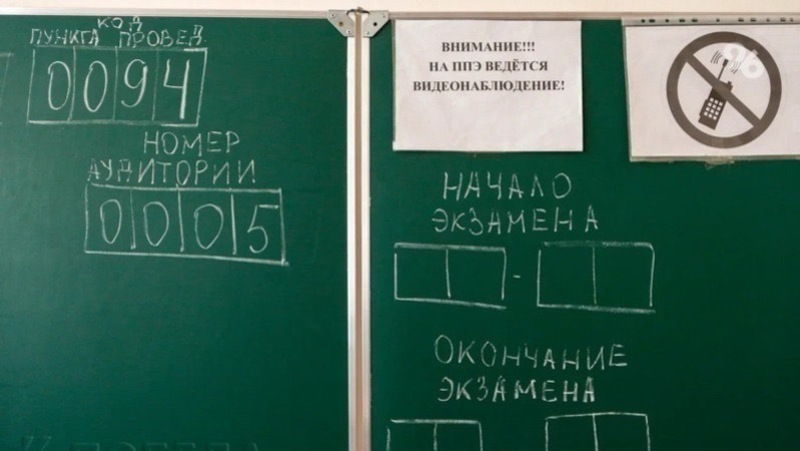 КОД
ПУНКТА ПРОВЕД
0094
НОМЕР
АУДИТОРИИ
0005
ВНИМАНИЕ!!!
НА ППЭ ВЕДЁТСЯ
ВИДЕОНАБЛЮДЕНИЕ!
НАЧАЛО
ЭКЗАМЕНА
-
ОКОНЧАНИЕ
ЭКЗАМЕНА